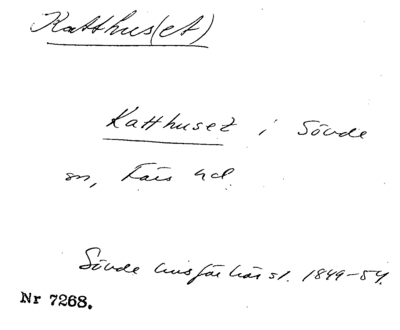 Katthus(et)
Katthuset i Sövde
sn, Färs hd.
Sövde husförhörsl. 1849-54.
Nr 7268.